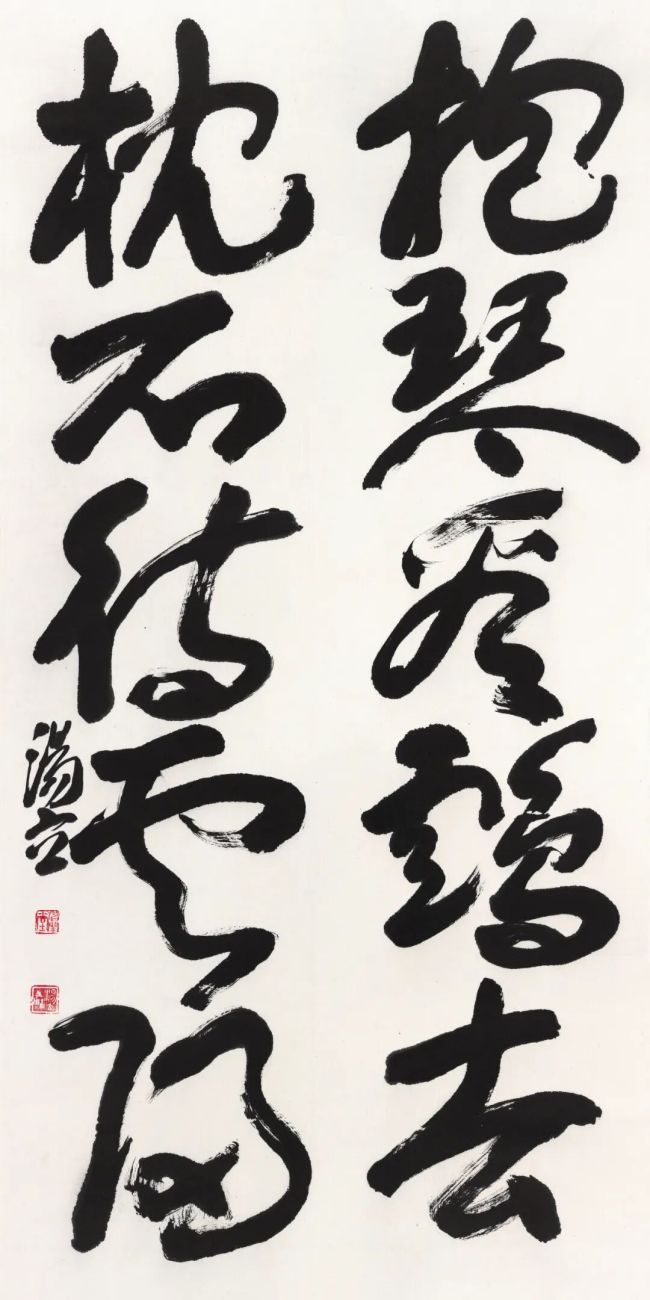 抱琴看鶴去
枕石待雲歸
湯立